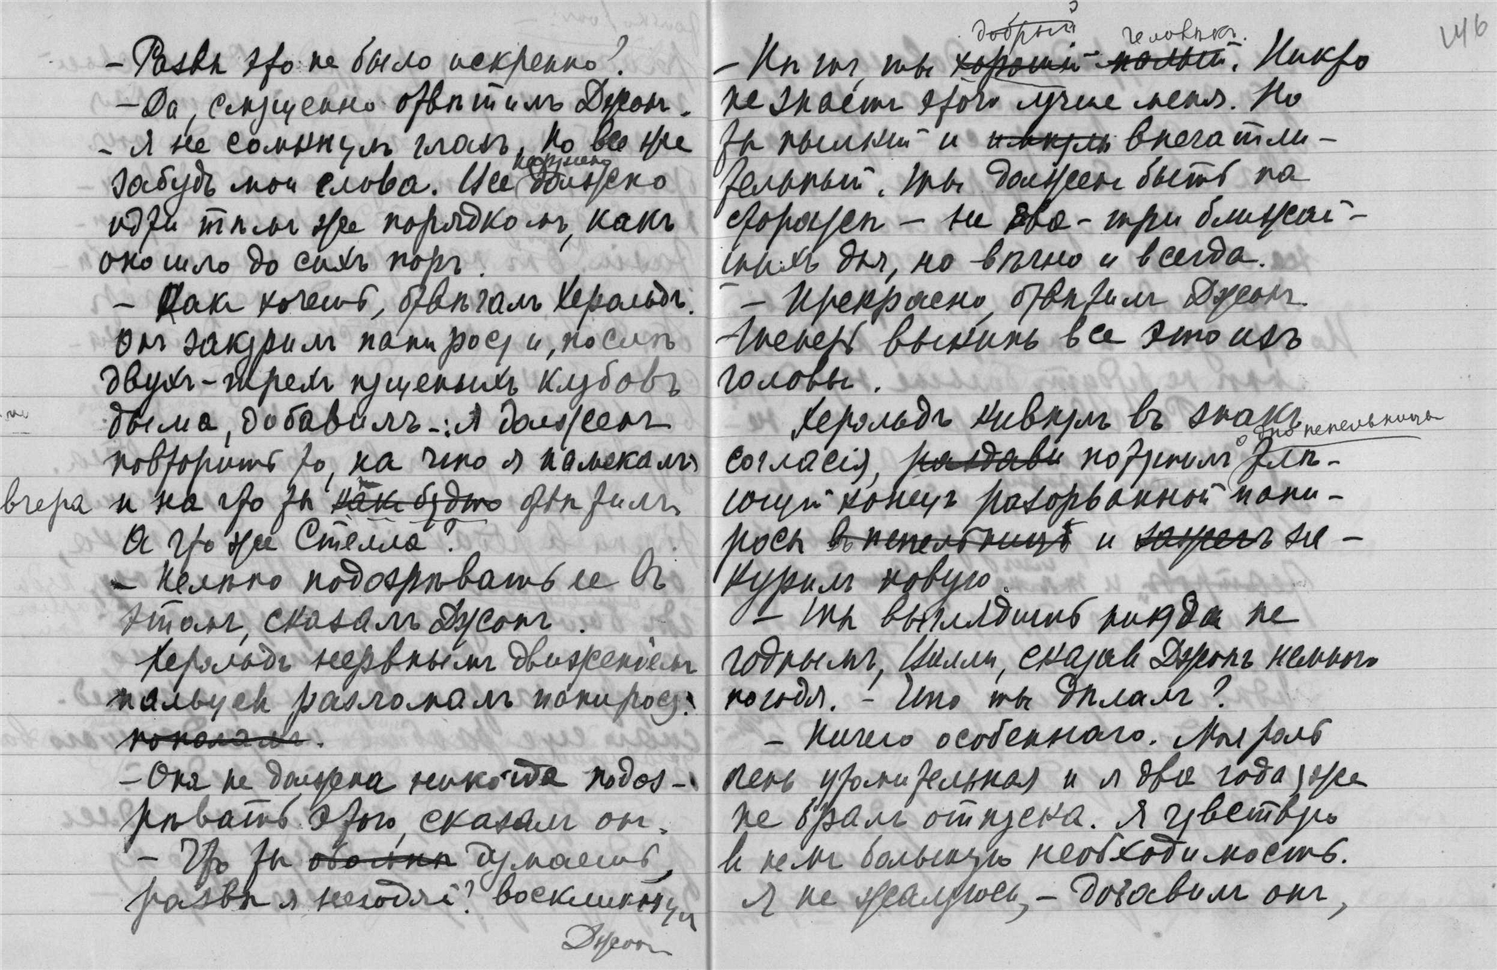 – Развѣ это не было искренно?
– Да, смущенно отвѣтилъ Джонъ.
– Я не сомкнулъ глазъ. Но все же
забудь мои слова. Все наружно должно
идти тѣмъ же порядкомъ, какъ
оно шло до сихъ поръ.
– Какъ хочешь, отвѣчалъ Херальдъ.
Онъ закурилъ папиросу и, послѣ
двухъ-трехъ пущеныхъ клубовъ
дыма, добавилъ: – Я долженъ
повторить то, на что я намекалъ
вчера и на что ты какъ будто отвѣтилъ.
А что же Стелла?
– Нелѣпо подозрѣвать ее въ
этомъ, сказалъ Джонъ.
Херальдъ нервнымъ движеніемъ
пальцевъ разломалъ папиросу.
пополамъ.
– Она не должна никогда подоз-
рѣвать этого, сказалъ онъ.
– Что ты думаешь,
развѣ я негодяй? воскликнулъ
Джонъ
146
добрый человѣкъ.
– Нѣтъ, ты хорошій малый. Никто
не знаетъ этого лучше меня. Но
ты пылкій и впечатли-
тельный. Ты долженъ быть на
сторожѣ – не два-три ближай-
шихъ дня, но вѣчно и всегда.
– Прекрасно, отвѣтилъ Джонъ.
– Теперь выкинь все это изъ
головы.
Херальдъ кивнулъ въ знакъ
согласія, раздави потушилъ о дно пепельницы тлѣ-
ющій конецъ разорванной папи-
росы въ пепельницѣ и зажегъ за-
курилъ новую.
– Ты выглядишь никуда не
годнымъ, Вилли, сказалъ Джонъ немного
погодя. – Что ты дѣлалъ?
– Ничего особеннаго. Моя роль
очень утомительная и я два года уже
не бралъ отпуска. Я чувствую
въ немъ большую необходимость.
Я не жалуюсь, – добавилъ онъ,